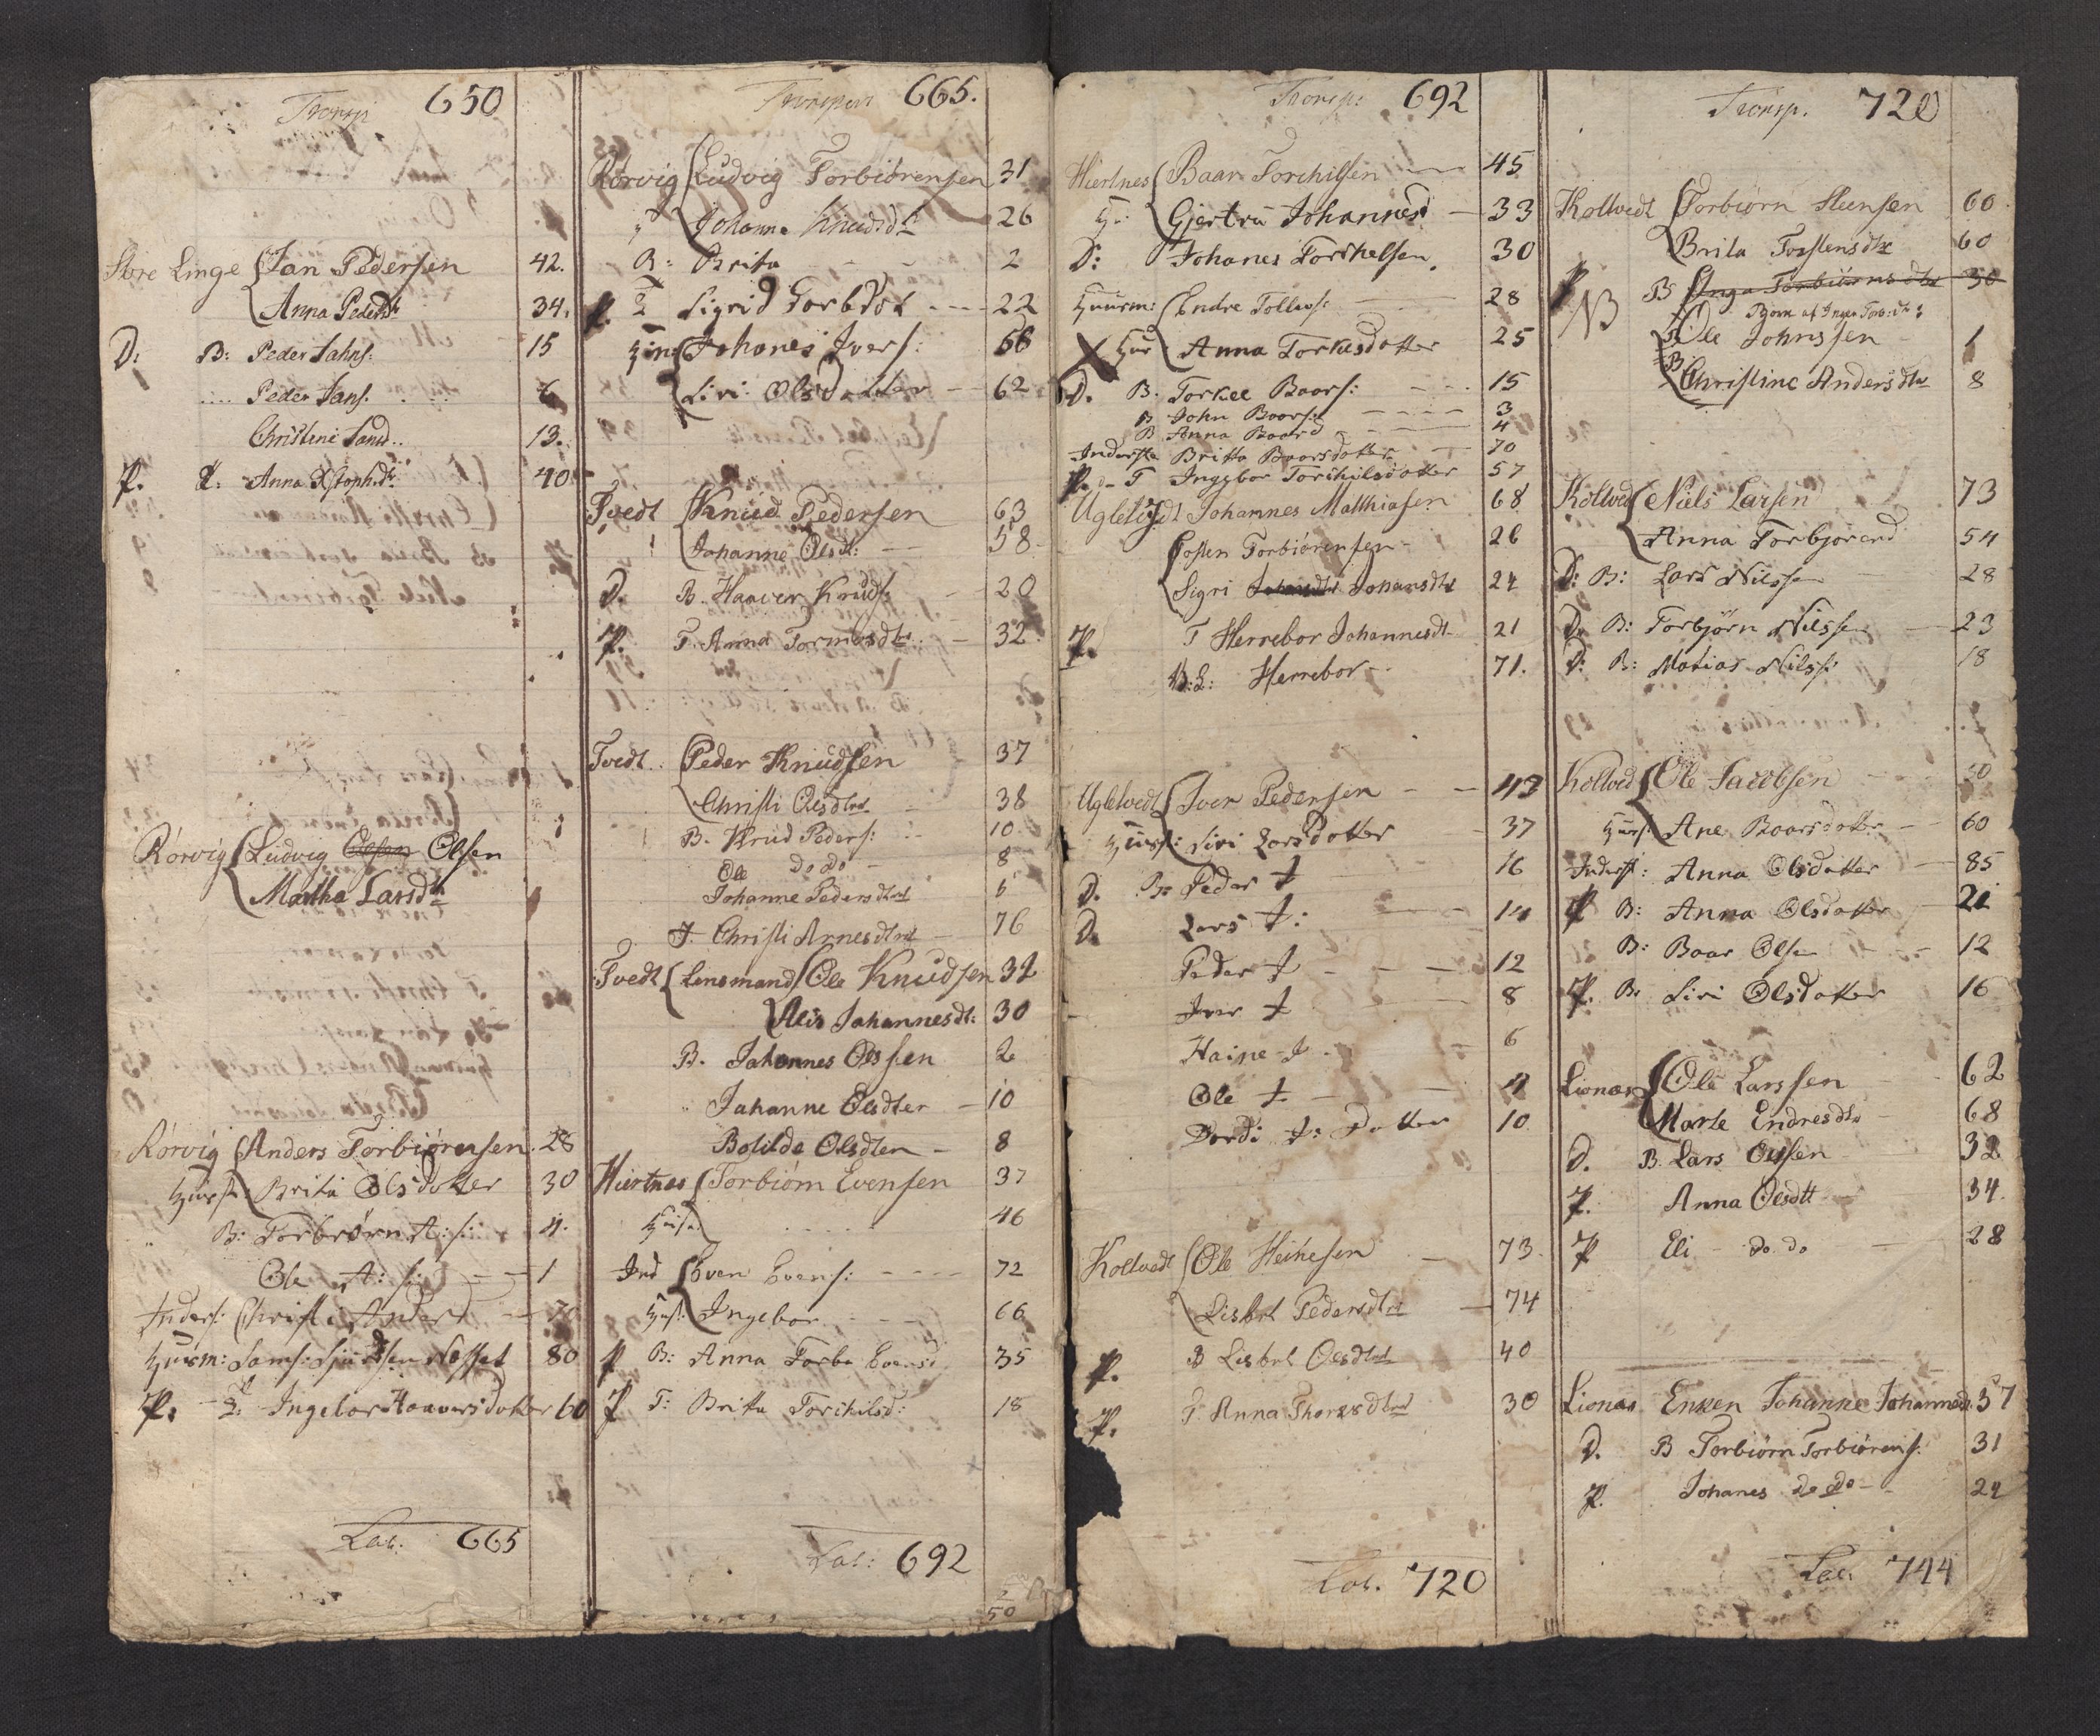 Transp 650
Store Linge Jan Pedersen 42.
Anna Pedersdt 34.
D: B: Peder Jahns: 15
Peder Jans: 6
Christine Jansd.. 13.
P. T. Anna Xstophdr 40
Rörvig Ludvig Olsen Olsen
Martha Larsdtr
Rörvig Anders Torbiörensen 28
Huusk: Brita Olsdotter 30
B: Torbiörn A: s: 4.
Ole A: s: 1
Inders: Christi Andersd
Huusm: Sams: Sjurssen Nesset 80
P. T. Ingebor Haaversdotter 60
Lat: 665
Transpor 665.
Rörvig Ludvig Torbiörensen 31
Johanne Knudsdtr 26
B: Brita 2
P. T Sigrid Torbdot 22
Johanes Ivers: 66
Siri Olsdatter 62
Tvedt Knud Pedersen 63
Johanne Olsdt: 58
D. B. Haaver Knuds: 20
P. T. Anna Tormosdtr 32
Tvedt Peder Knudsen 37
Christi Olsdtr 38
B. Knud Peders: 10
Ole Do Do 8
Johanne Pedersdtr 6
I. Christi Arnesdtr 76
Tvedt Lensmand Ole Knudsen 32
Alis Johannesdt: 30
B. Johannes Olssen 2
Johanne Olsdter 10
Botilda Olsdter 8
Hiertnes Torbiörn Evensen 37
46
Ind Even Evens: 72
Ingebor 66
P B: Anna Torbe Evensd 35
P T: Britta Torchilsd: 18
Lat: 692
2
50
Transp: 692
Hiertnes Baar Torchilsen 45
Gjertru Johannesd 33
D: Johanes Torkelsen 30
Huusm: Endre Tollevs: 28
Anna Torkilsdotter 25
D. B. Torkel Baars: 15
B John Baars: 3
B Anna Baard 4
Inderste Britta Baarsdotter 70
P. T Ingebor Torchilsdotter 57
Ugletvedt Johannes Matthiasen 68
Tosten Torbiörensen 26
Sigri Johansdtr Johansdtr 24
P. T Herrebor Johannesdt 21
Herrebor 71.
Ugletvedt Iver Pedersen 47
Siri Larsdotter 37
D. B: Peder I 16
D. Lars I: 14
Peder I 12
Iver I 8
Haine I 6
Ole I 4
Dordi I: Dotter 10
Koltvedt Ole Heinesen 73
Lisbet Pedersdtr 74
P. B Lisbet Olsdtr 40
P. T Anna Thoresdtr 30
Lat. 720
Transp. 720
Koltvedt Torbiörn Steensen 60
Brita Torstensdtr 60
P B Inga Torbiörnsdtr 30
NB Børn af Inger Torb:dtr:
Ole Johnssen 1
B: Christine Andersdtr 8
Koltved Niels Larsen 73
Anna Torbjørend 54
D: B: Lars Nilssen 28
D. B: Torbjörn Nilssen 23
D: B: Matias Nilss: 18
Koltved Ole Jacobsen 50
Ane Baarsdotter 60
Inderst: Anna Olsdatter 85
P B: Anna Olsdatter 21
B: Baar Olsen 12
P. B: Siri Olsdatter 16
Lionæs Ole Larssen 62
Marte Endresdtr 68
D. B. Lars Olssen 32
P. Anna Olsdtt 34
P Eli do do 28
Lionæs Enken Johanne Johannesd. 57
D. B Torbiörn Torbiörens: 31
P. Johanes do do 24
Lat. 744